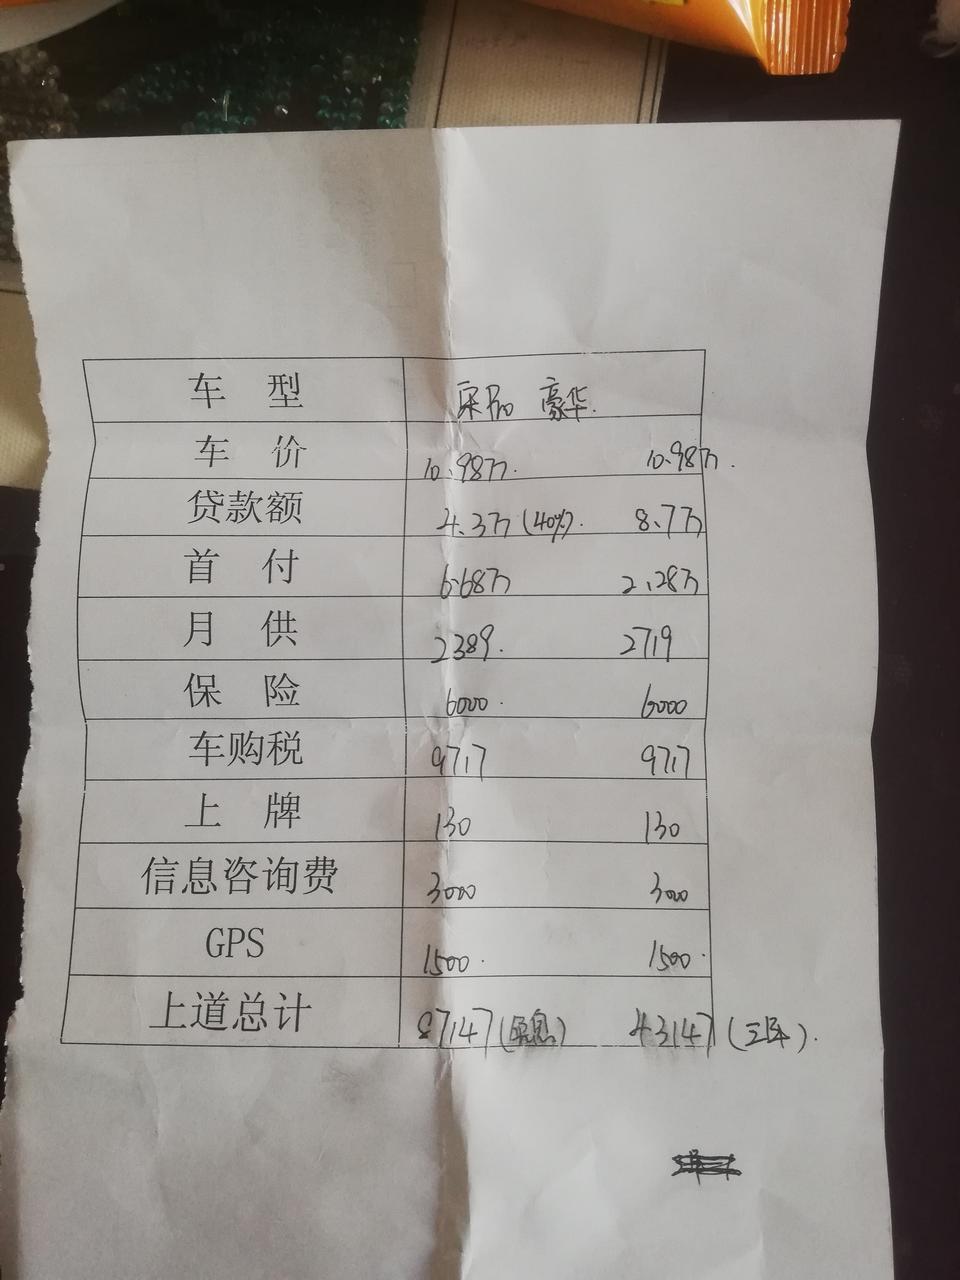 车 型 宋Pro 豪华.
车 价 10.98万. 10.98万.
贷款额 4.3万(40%). 8.7万
首 付 6.68万 2.28万
月 供 2389. 2719
保 险 6000. 6000
车购税 9717 9717
上 牌 130 130
信息咨询费 3000 3000
GPS 1500. 1500.
上道总计 87147( 息) 43147(三年).